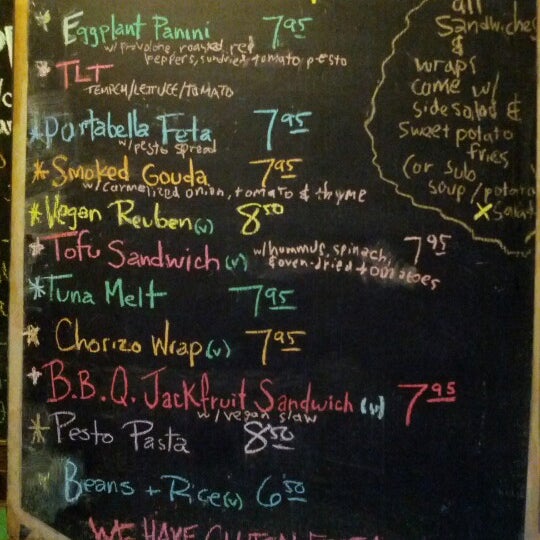 * Eggplant Panini 7.95
w/ provolone, roasted red
peppers, sundried tomato pesto
* TLT
TEMPEH/LETTUCE/TOMATO
* Portabella Feta 7.95
w/pesto spread
* Smoked Gouda 7.95
w/ carmelized onion, tomato & thyme
* Vegan Reuben (v) 8.50
* Tofu Sandwich (v) w/hummus, spinach, 7.95
& oven-dried tomatoes
* Tuna Melt 7.95
* Chorizo Wrap (v) 7.95
* B.B.Q. Jackfruit Sandwich (v) 7.95
w/vegan slaw
* Pesto Pasta 8.50
Beans + Rice (v) 6.50
WE HAVE
all
Sandwiches
&
wraps
come w/
side salad &
sweet potato
fries
(or sub
soup/potato
x salad